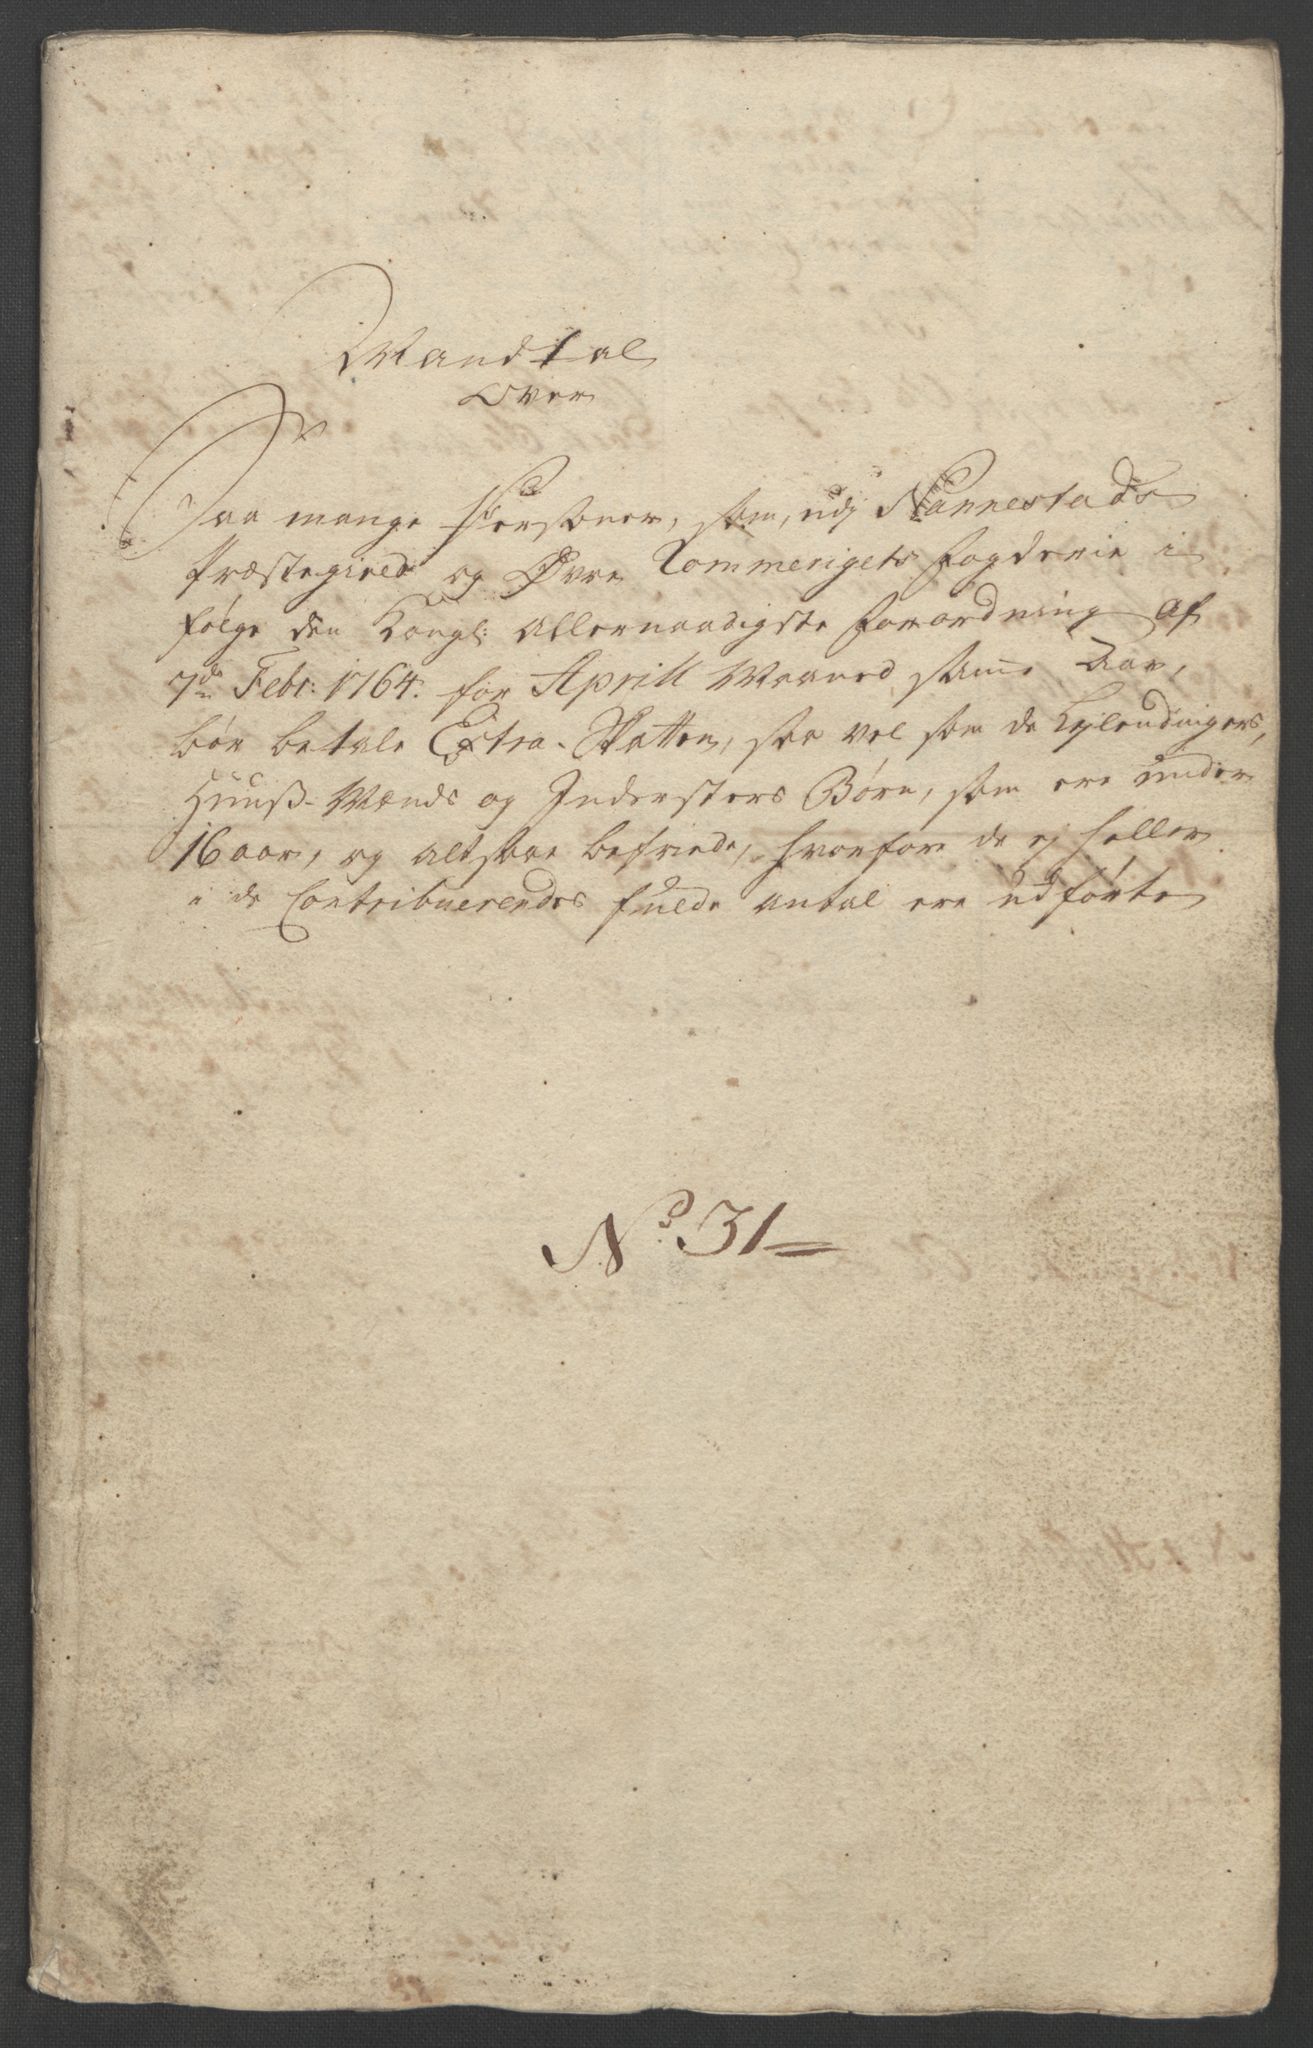 Mandtal
Over
Saa mange Personer, som, udj Nannestads
Præstegield og Øvre Rommerigets Fogderie i
følge den Kongl: Allernaadigste Forordning af
7de Febr: 1764. for Aprill Maaned samme Aar,
bør betale Extra-Skatten, saa vel som de Leylendingers,
Huuß-Mænds og Indersters Børn, som ere under
16 aar, og altsaa befriede, hvorfore de ej heller
i de Contribuerendes fulde antal ere udførte
No 31